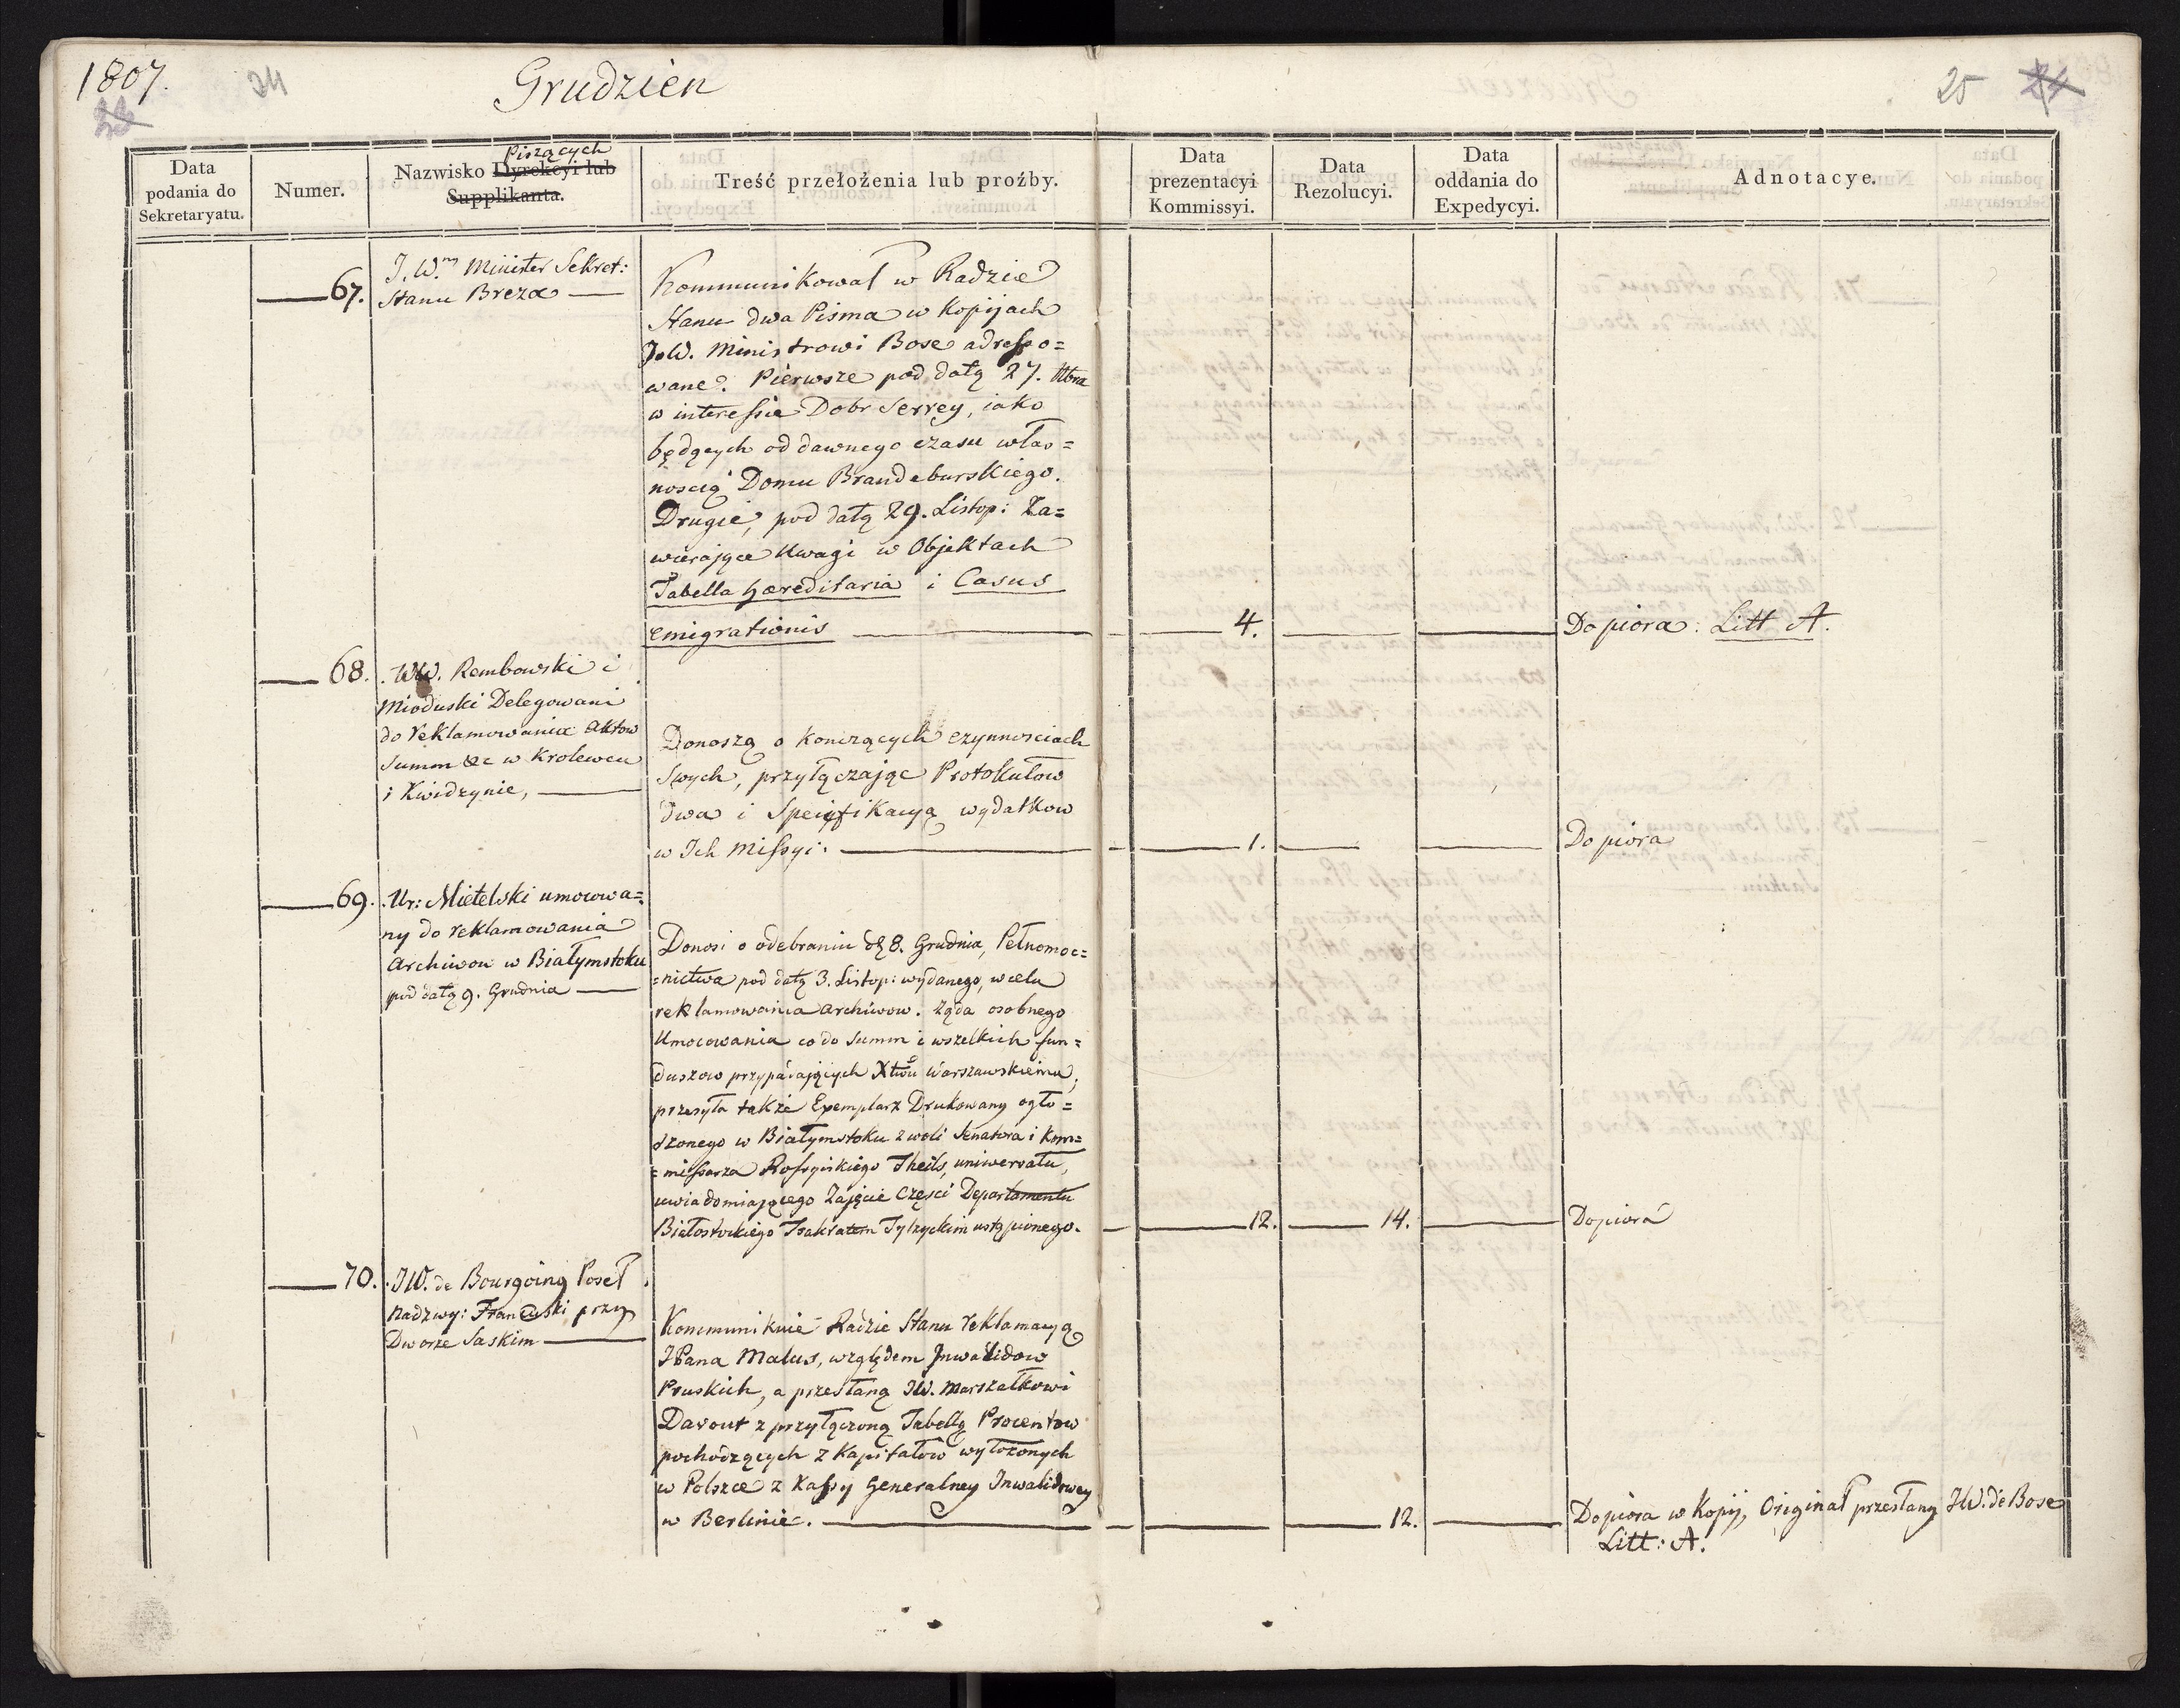 1807.
24
Grudzien
25 24
Data
podania do
Sekretaryatu.
Numer.
Piszących
Nazwisko Dyrekcyi lub
Supplikanta.
Treść przełożenia lub proźby.
Data
prezentacyi
Kommissyi.
Data
Rezolucyi.
Data
oddania do
Expedycyi.
Adnotacye.
67.
J.W.m Minister Sekret:
Stanu Breza
Kommunikował w Radzie
Stanu dwa Pisma w Kopijach
JoW. Ministrowi Bose adresso=
wane. Pierwsze pod datą 27. Xbra
w interessie Dobr Serrey, iako
będących od dawnego czasu włas=
noscią Domu Brandeburskiego.
Drugie, pod datą 29. Listop: Za=
wierające Uwagi w Objektach
Tabella hæreditaria i Casus
emigrationis
4.
Do piora: Litt A.
68.
WW. Rembowski i
Mioduski Delegowani
do reklamowania aktow
Summ &c w Krolewcu
i Kwidzynie,
Donoszą o konczących czynnosciach
swych, przyłączając Protokułow
dwa i Specifikacyą wydatkow
w Ich Missyi.
1.
Do piora
69.
Ur: Mietelski umocowa=
ny do reklamowania
Archiwow w Białymstoku
pod datą 9. Grudnia
Donosi o odebraniu d 8. Grudnia, Pełnomoc=
=nictwa pod datą 3. Listop: wydanego, w celu
reklamowania archiwow. Żąda osobnego
Umocowania co do Summ i wszelkich fun=
duszow przypadających Xtwu Warszawskiemu,
przesyła także Exemplarz Drukowany ogło=
szonego w Białymstoku z woli Senatora i Kom=
=missarza Rossyiskiego Theils, uniwersału,
uwiadomiającego Zajęcie Częsci Departamentu
Białostockiego Traktatem Tylzyckim ustąpionego.
12.
14.
Do piora
70.
JW. de Bourgoing Poseł
Nadzwy: Francuski przy
Dworze Saskim
Kommunikuie Radzie Stanu reklamacyą
JPana Malus, względem Inwalidow
Pruskich, a przesłaną JW. Marszałkowi
Davout z przyłączoną Tabellą Procentow
pochodzących z Kapitałow wyłożonych
w Polszce z Kassy Generalney Inwalidowey
w Berlinie.
12.
Do piora w Kopij, Originał przesłany JW. de Bose
Litt: A.